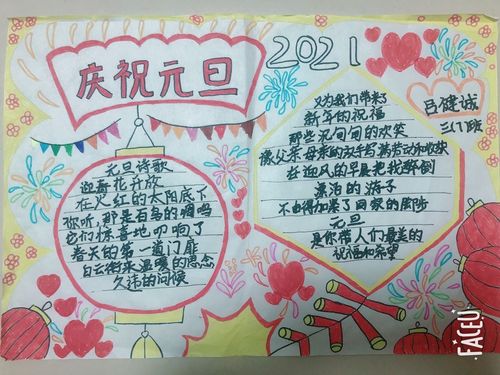 庆祝元旦
2021
吕健诚
三(7)班
元旦诗歌
迎春花开放
在火红的太阳底下
你听,那是百鸟的啁鸣
它们惊喜地叩响了
春天的第一道门扉
白云衔来温暖的思念
久违的问候
又为我们带来了
新年的祝福
那些沉甸甸的欢笑
像父亲母亲的双手写满劳动和收获
赶迎风的早晨把我醉倒
漂泊的游子
不由得加紧了回家的脚步
元旦
是你借人们最美的
祝福和希望
FACEU